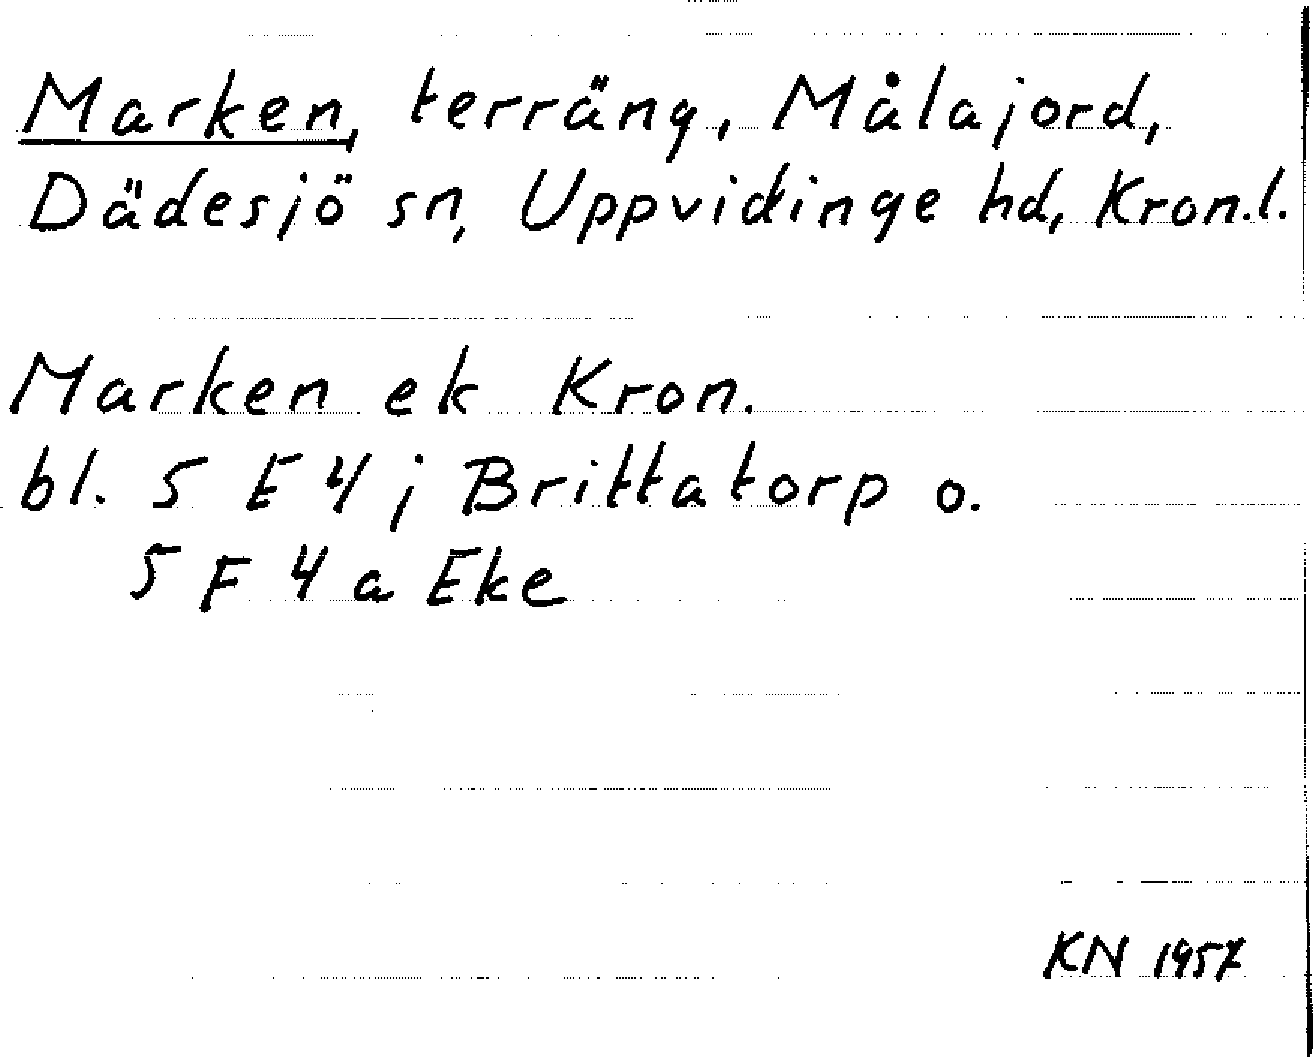 Marken, terräng, Målajord,
Dädesjö sn, Uppvidinge hd, Kron.l.
Marken ek Kron.
bl. 5 E 4 j Brittatorp o.
5 F 4 a Eke
KN 1957